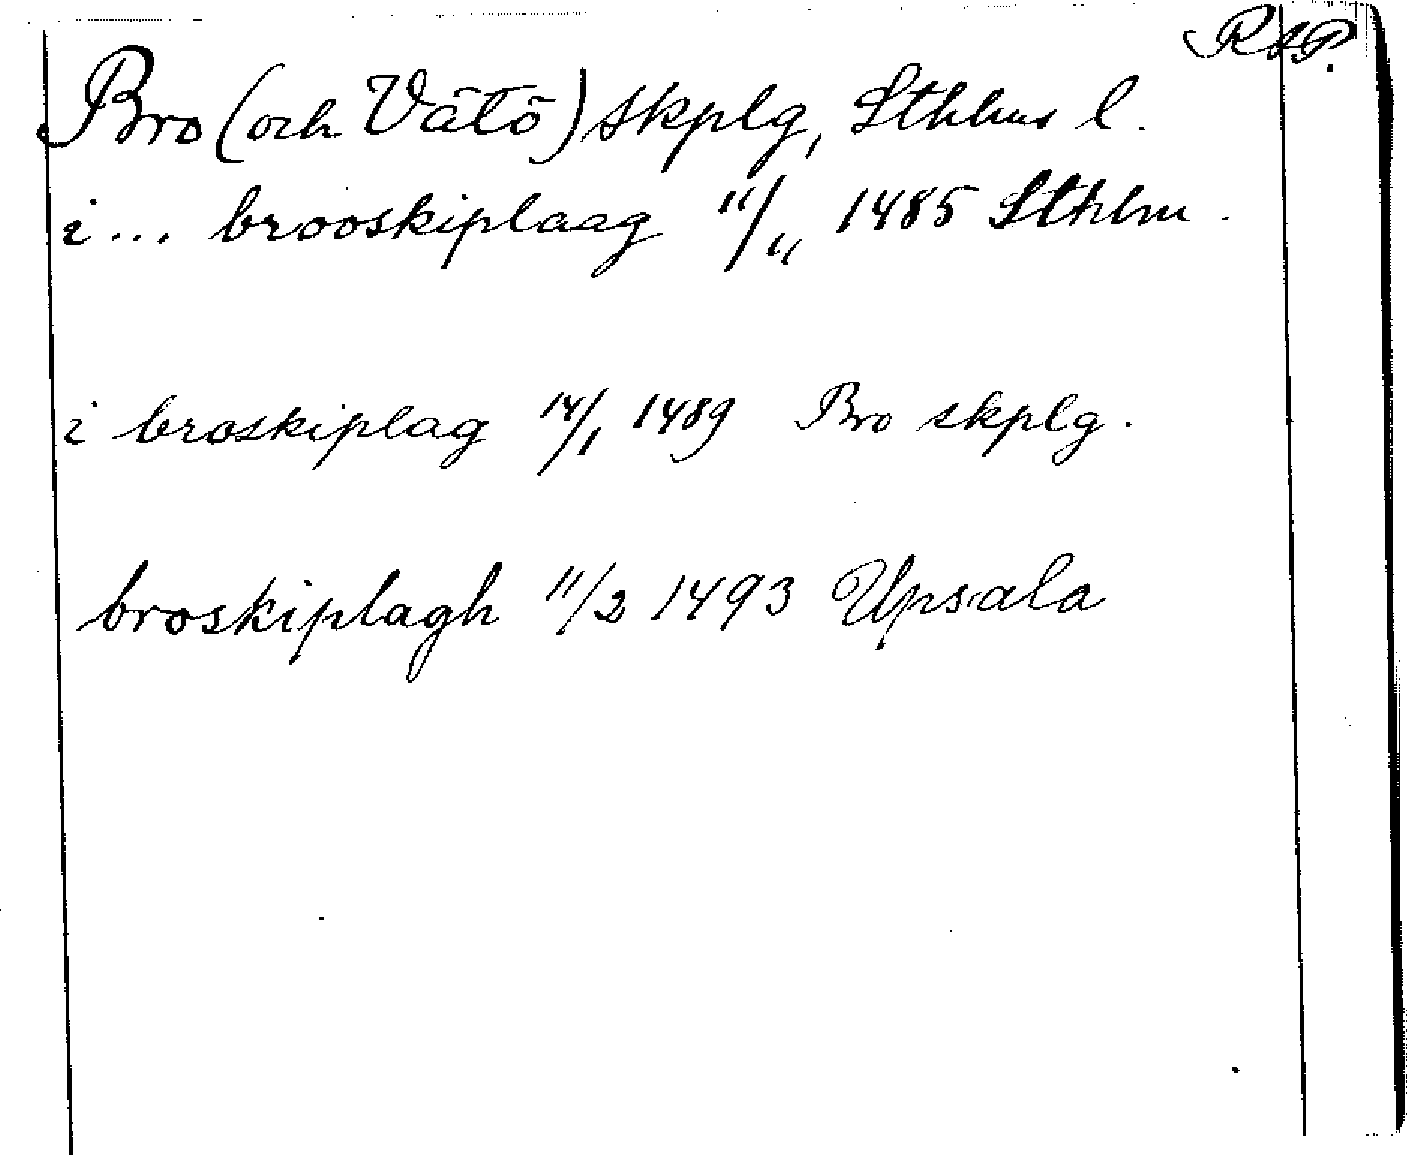 RAP.
Bro (och Vätö) skplg, Sthlms l.
i... brooskiplaag 11/11 1485 Sthlm.
i broskiplag 14/1 1489 Bro skplg.
broskiplagh 11/2 1493 Upsala